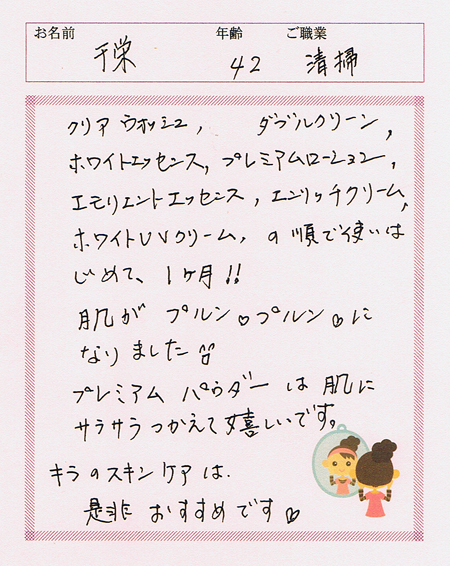 お名前 年齢 ご職業
千栄 42 清掃
クリアウォッシュ, ダブルクリーン,
ホワイトエッセンス, プレミアムローション,
エモリエントエッセンス, エンリッチクリーム,
ホワイトUVクリーム, の順で使いは
じめて、1ヶ月!!
肌が プルン♡プルン♡に
なりました!!
プレミアム パウダー は 肌に
サラサラつかえて嬉しいです。
キラのスキンケアは.
是非 おすすめです♡